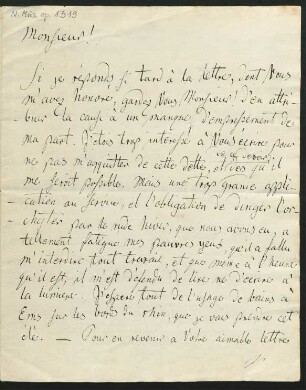 Monsieur!
Si je réponds si tard à la lettre, dont Vous
m'avez honoré, gardez Vous, Monsieur! d'en attri-
buer la cause à un manque d'empressement de
ma part. J'étois trop intéressé à Vous écrire pour
ne pas m'acquitter de cette dette, qu'il
me seroit possible. Mais une trop grande appli-
cation au service, et l'obligation de diriger l'or-
chestre par le rude hiver, que nous avons eu, a
tellement fatigué mes pauvres yeux, qu'il a fallu
m'interdire tout travail, et que même à l'heure
qu'il est, il m'est défendu de lire ou d'écrire à
la lumière. J'espère tout de l'usage de bains à
Ems sur les bords du rhin, que je vais prendre cet
été. — Pour en revenir à Votre aimable lettre